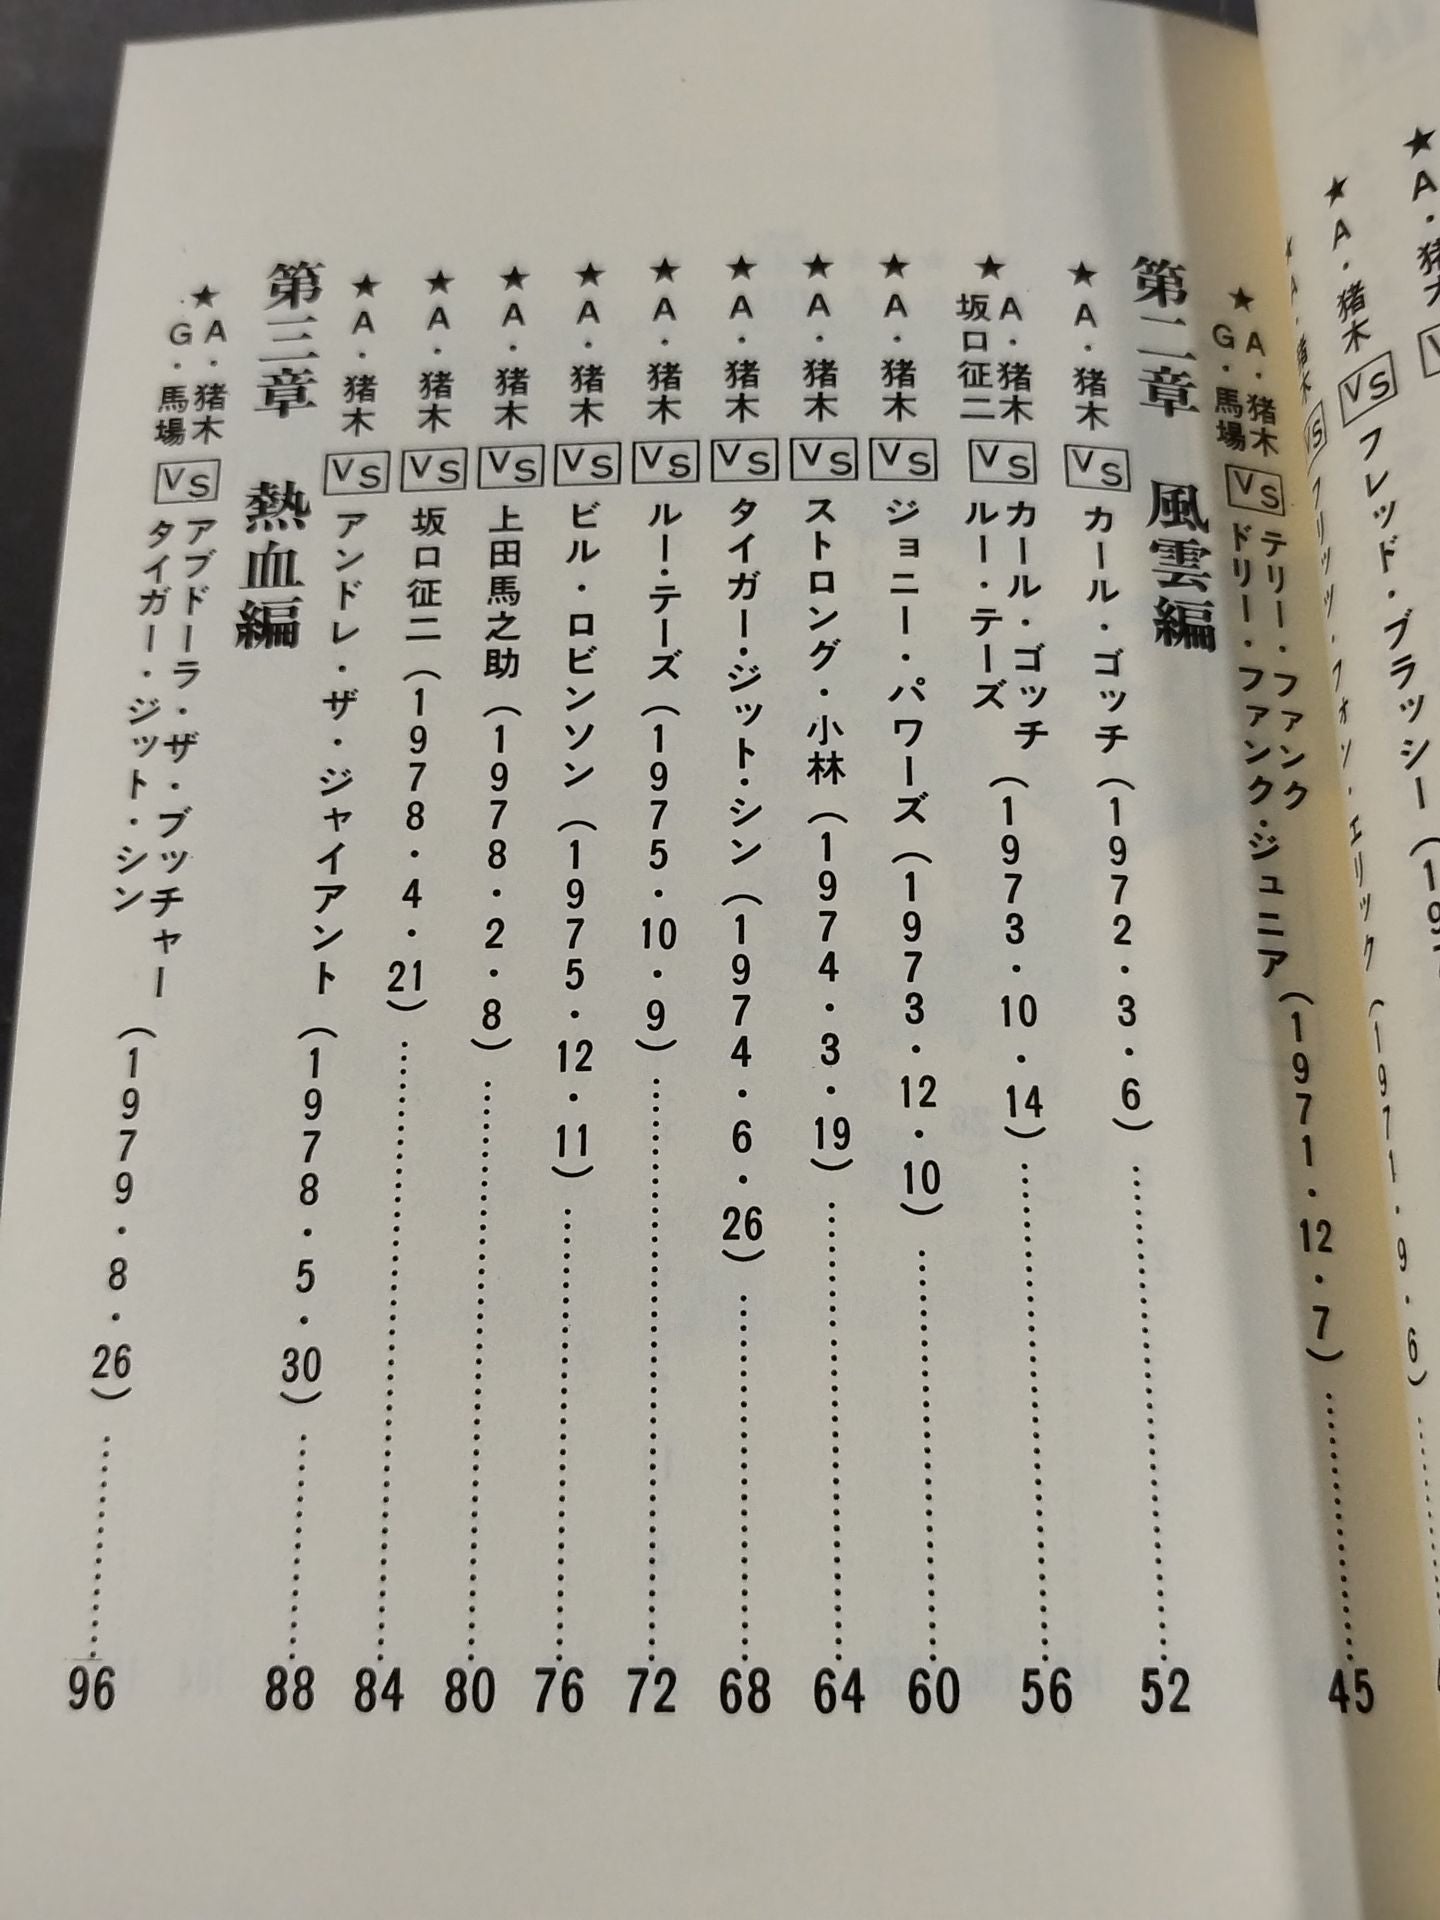 ★A・猪木
★A・猪木 VS フレッド・ブラッシー(197
★A・猪木 VS フリッツ・フォン・エリック(1971・9・6)
★A・猪木
G・馬場 VS テリー・ファンク
ドリー・ファンク・ジュニア(1971・12・7)……45
第二章 風雲編
★A・猪木 VS カール・ゴッチ(1972・3・6)……52
★A・猪木
坂口征二 VS カール・ゴッチ
ルー・テーズ(1973・10・14)……56
★A・猪木 VS ジョニー・パワーズ(1973・12・10)……60
★A・猪木 VS ストロング・小林(1974・3・19)……64
★A・猪木 VS タイガー・ジット・シン(1974・6・26)……68
★A・猪木 VS ルー・テーズ(1975・10・9)……72
★A・猪木 VS ビル・ロビンソン(1975・12・11)……76
★A・猪木 VS 上田馬之助(1978・2・8)……80
★A・猪木 VS 坂口征二(1978・4・21)……84
★A・猪木 VS アンドレ・ザ・ジャイアント(1978・5・30)……88
第三章 熱血編
★A・猪木
G・馬場 VS アブドーラ・ザ・ブッチャー
タイガー・ジット・シン(1979・8・26)……96